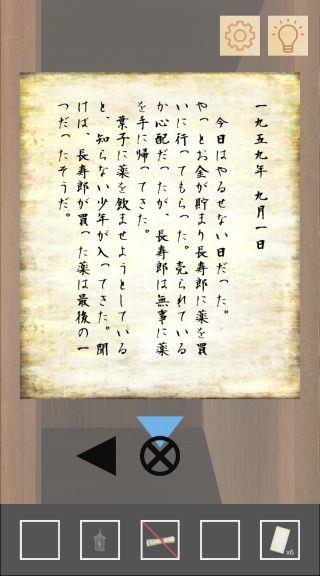 一九五九年　九月一日
今日はやるせない日だった。
やっとお金が貯まり長寿郎に薬を買
いに行ってもらった。売られている
か心配だったが、長寿郎は無事に薬
を手に帰ってきた。
葉子に薬を飲ませようとしている
と、知らない少年が入ってきた。聞
けば、長寿郎が買った薬は最後の一
つだったそうだ。
x6